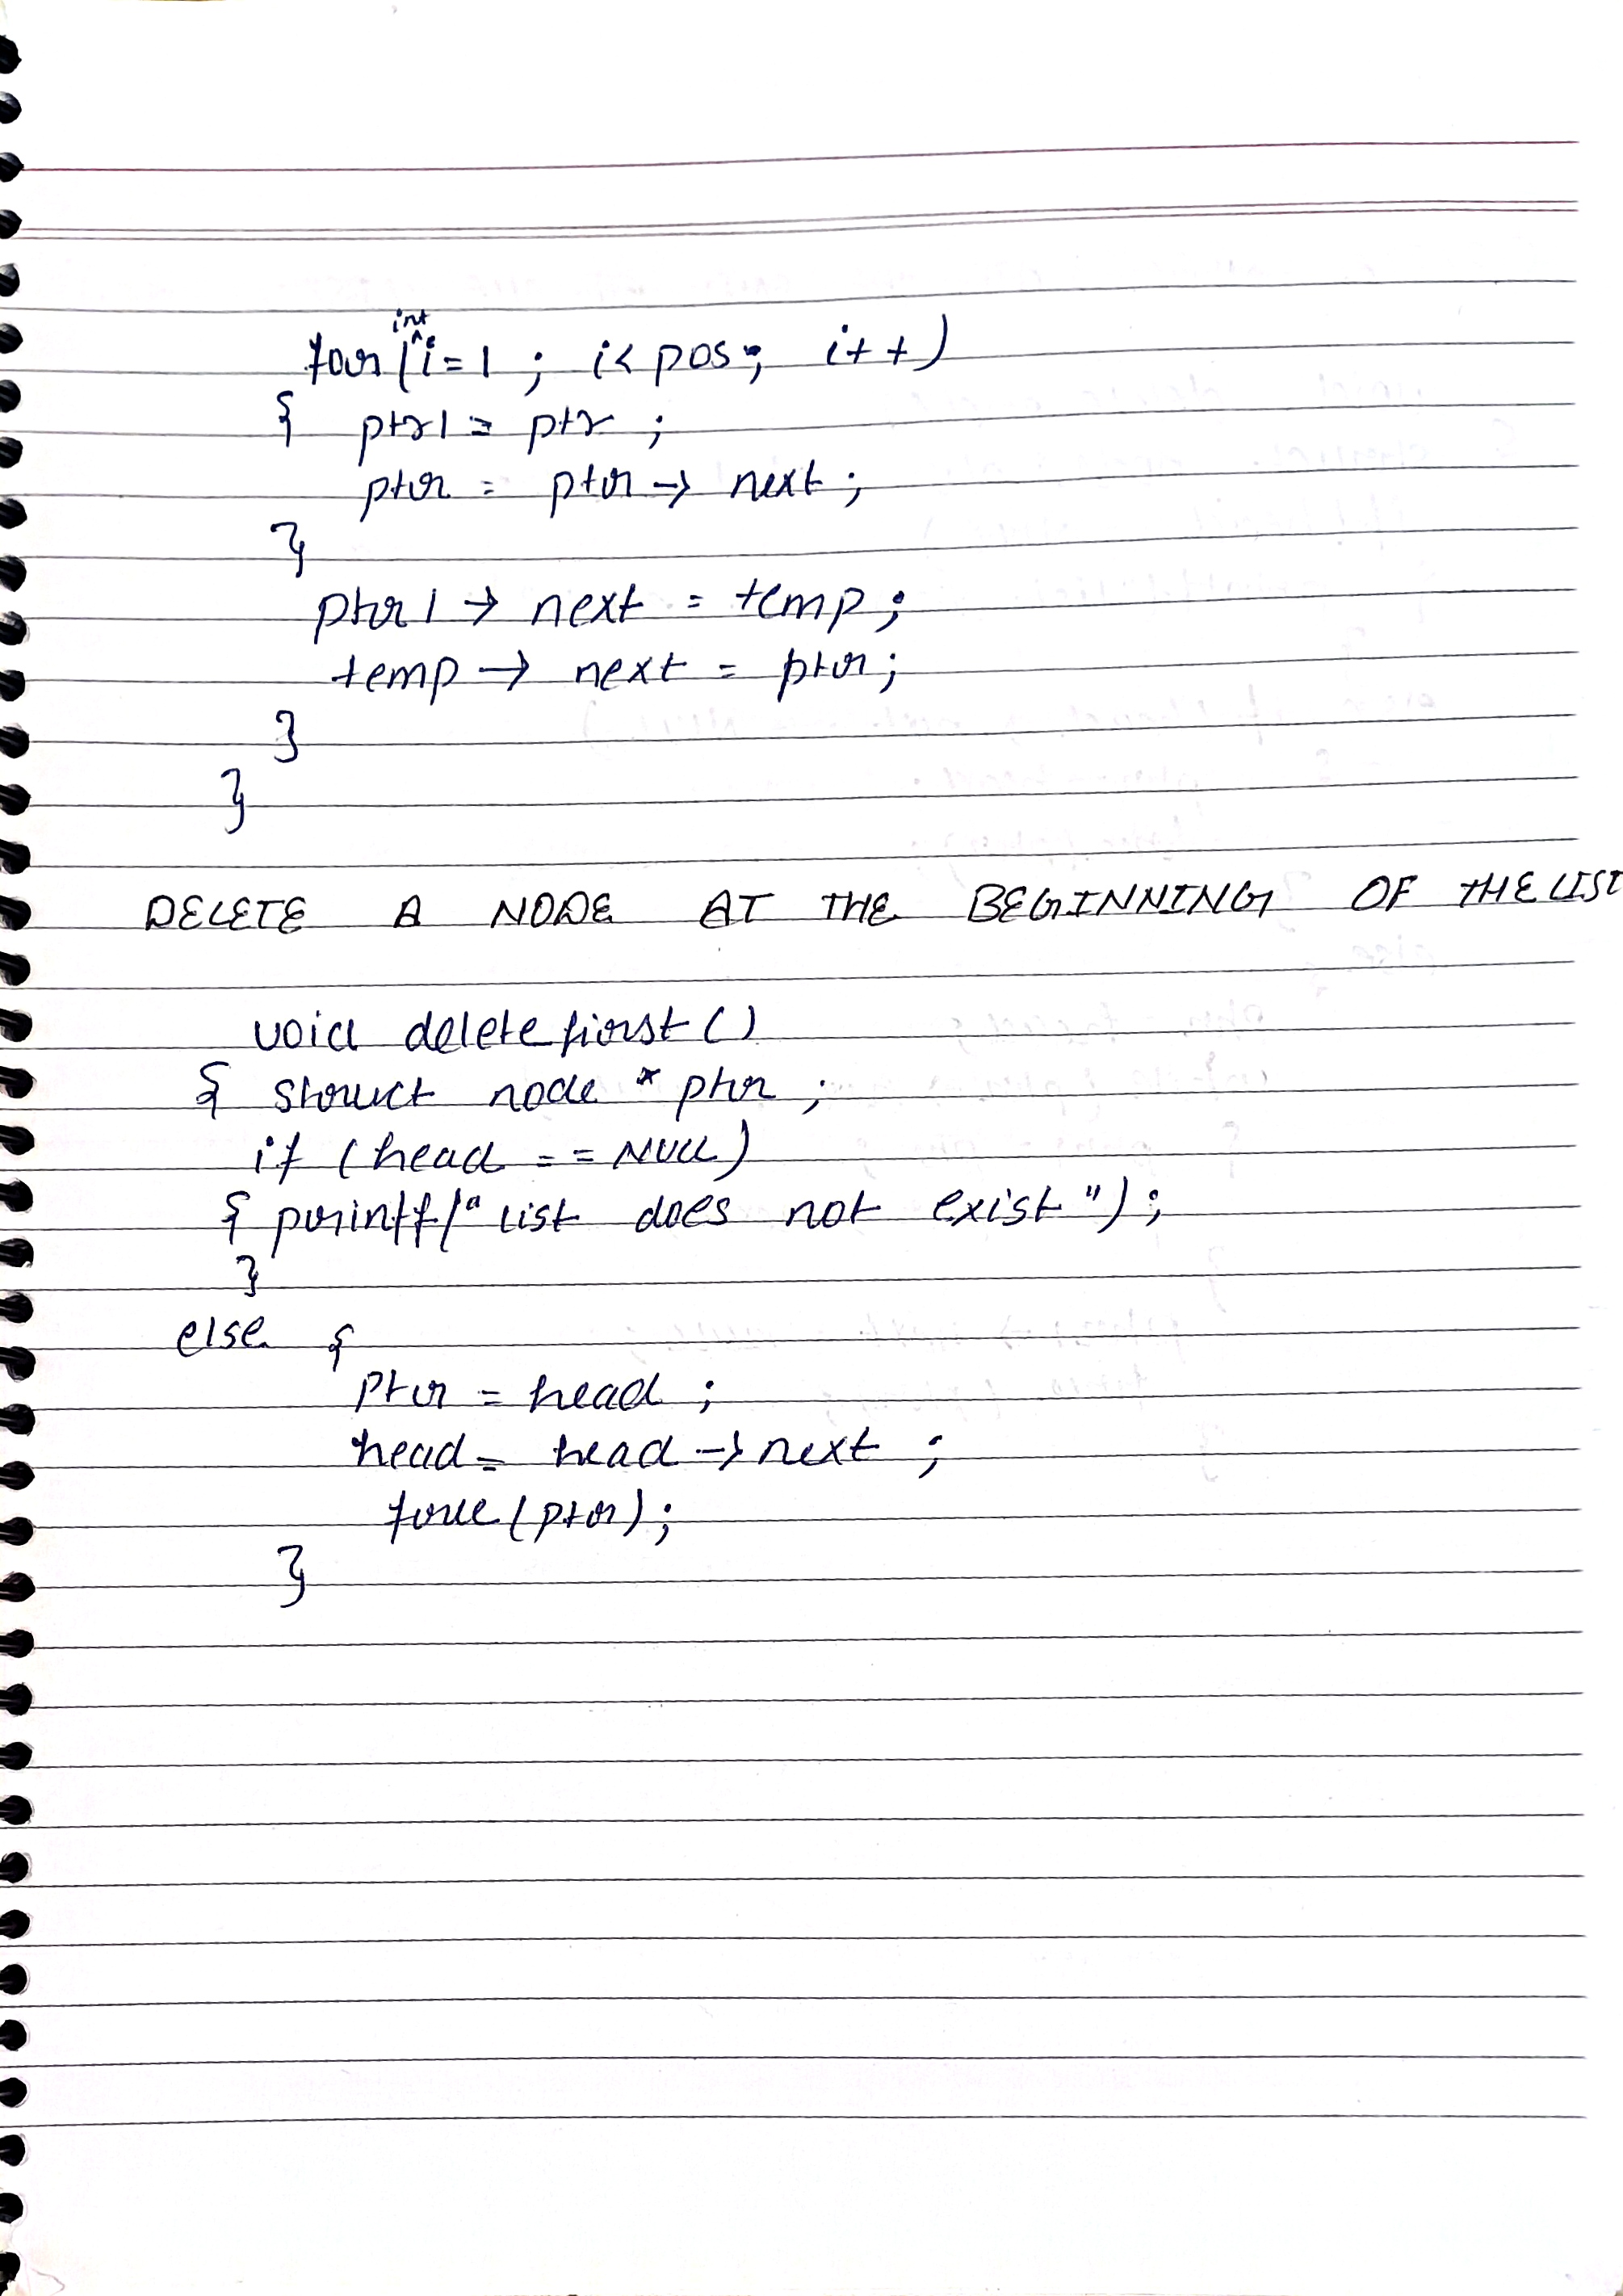 for (int i=1 ; i< pos; i++)
{ ptr1 = ptr ;
ptr = ptr → next ;
}
ptr1 → next = temp;
temp → next = ptr;
}
}
DELETE A NODE AT THE BEGINNING OF THE LIST
void deletefirst()
{ struct node * ptr ;
if (head == NULL)
{ printf("list does not exist");
}
else {
ptr = head ;
head = head → next ;
free(ptr);
}